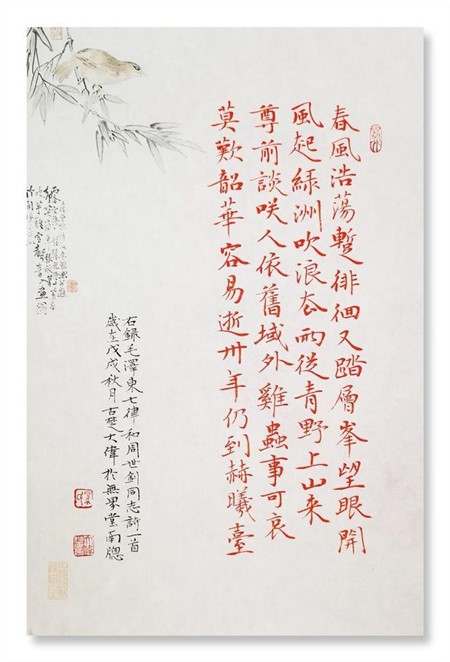 春風浩蕩暫徘徊又踏層峯望眼開
風起綠洲吹浪去雨從青野上山来
尊前談咲人依舊域外雞蟲事可哀
莫歎韶華容易逝卅年仍到赫曦臺
右録毛澤東七律和周世釗同志詩一首
歲在戊戌秋月古楚大偉於無界堂南牕